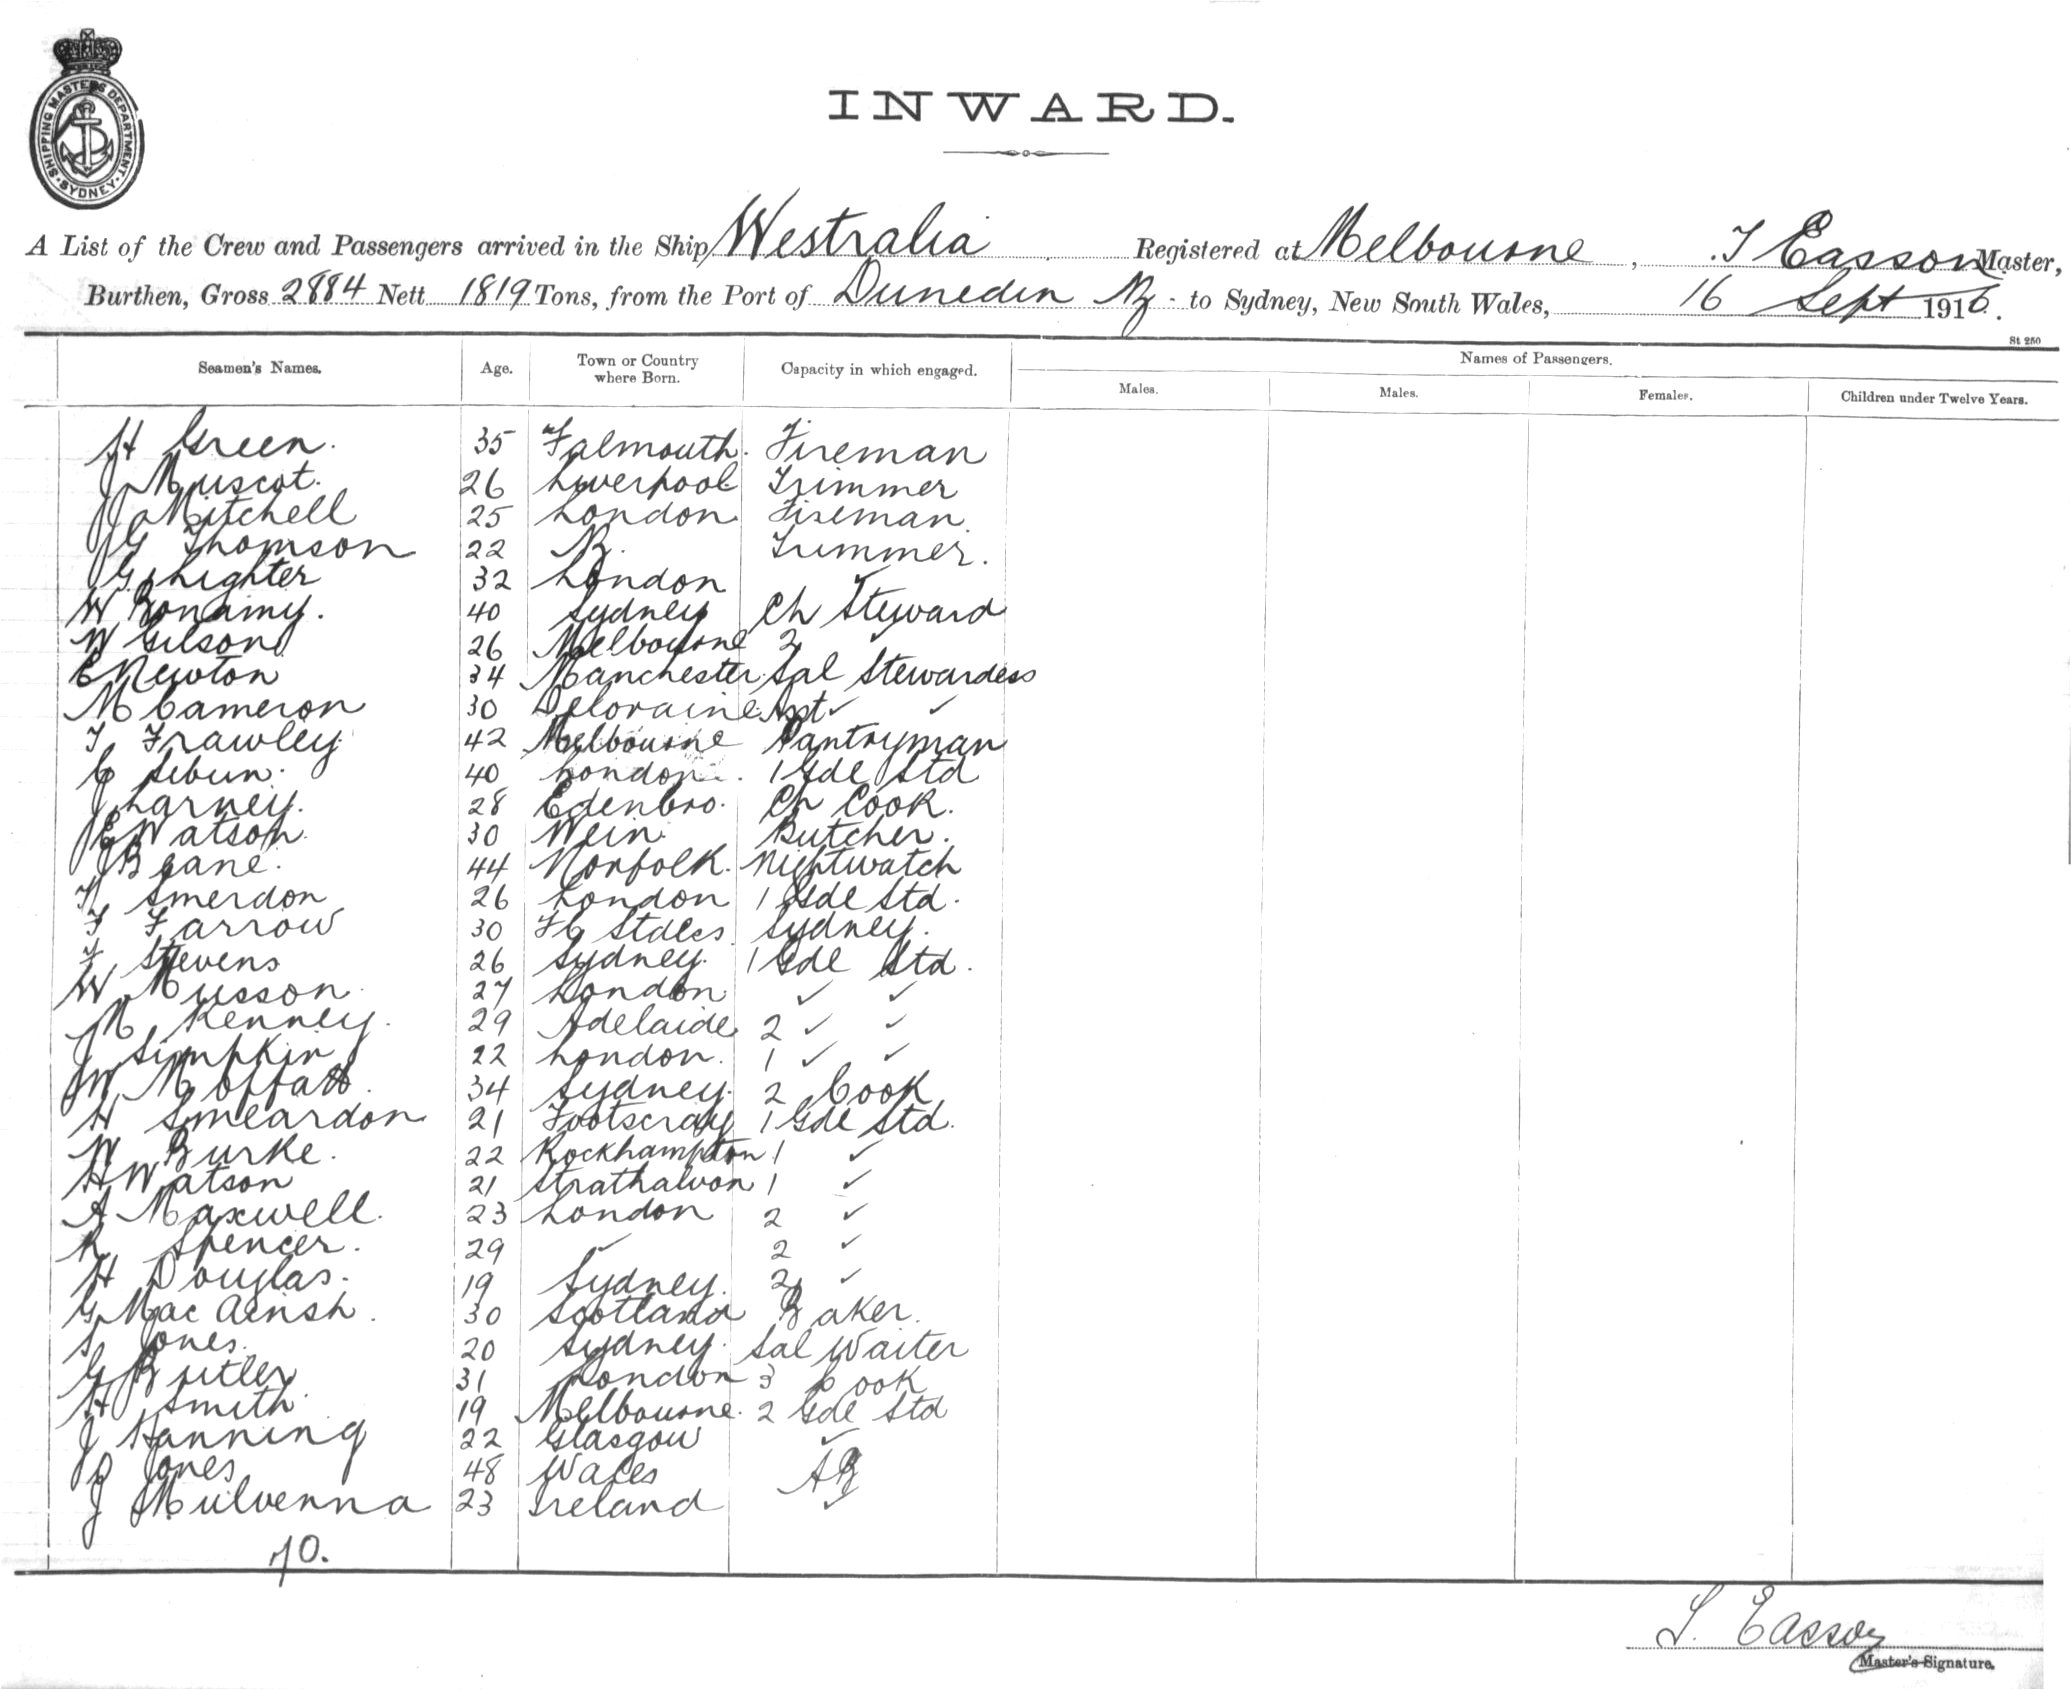 SHIPPING MASTERS DEPARTMENT
SYDNEY
INWARD.
A List of the Crew and Passengers arrived in the Ship Westralia Registered at Melbourne, T Easson Master,
Burthen, Gross 2884 Nett 1819 Tons, from the Port of Dunedin NZ to Sydney, New South Wales, 16 Sept 1916.
St 250
Seamen's Names. Age. Town or Country where Born. Capacity in which engaged. Names of Passengers.
Males. Males. Females. Children under Twelve Years.
H Green. 35 Falmouth. Fireman
J Muscat. 26 Liverpool Trimmer
J Mitchell 25 London Fireman.
J G Thomson 22 NZ. Trimmer.
G Lighter 32 London ✓
W Bonamy. 40 Sydney Ch Steward
W Gilson 26 Melbourne 2 ✓
E Newton 34 Manchester Sal Stewardess
M Cameron 30 Deloraine Asst ✓ ✓
T Frawley 42 Melbourne Pantryman
C Sibun. 40 London. 1 Gde Std
J Larney. 28 Edenbro. Ch Cook.
J E Watson. 30 Wein Butcher.
J B 44 Norfolk. Nightwatch
H Smerdon 26 London 1 Gde Std.
F Farrow 30 States Sydney.
F Stevens 26 Sydney. 1 Gde Std.
W Musson 27 London ✓ ✓
M Kenney. 29 Adelaide 2 ✓ ✓
J Simpkin 22 London. 1 ✓ ✓
J W Moffatt. 34 Sydney. 2 Cook
H Smeardon 21 Footscray 1 Gde Std.
W Burke. 22 Rockhampton 1 ✓
H Watson 21 Strathalvon 1 ✓
A Maxwell. 23 London 2 ✓
R Spencer. 29 ✓ 2 ✓
H Douglas. 19 Sydney. 2 ✓
G Mac Ainsh. 30 Scotland Baker.
S Jones. 20 Sydney. Sal Waiter
G Butler 31 London 3 Cook
H Smith 19 Melbourne. 2 Gde Std
J Hanning 22 Glasgow ✓
Jones 48 Wales AB
J Mulvenna 23 Ireland ✓
70.
T. Easson
Master's Signature.